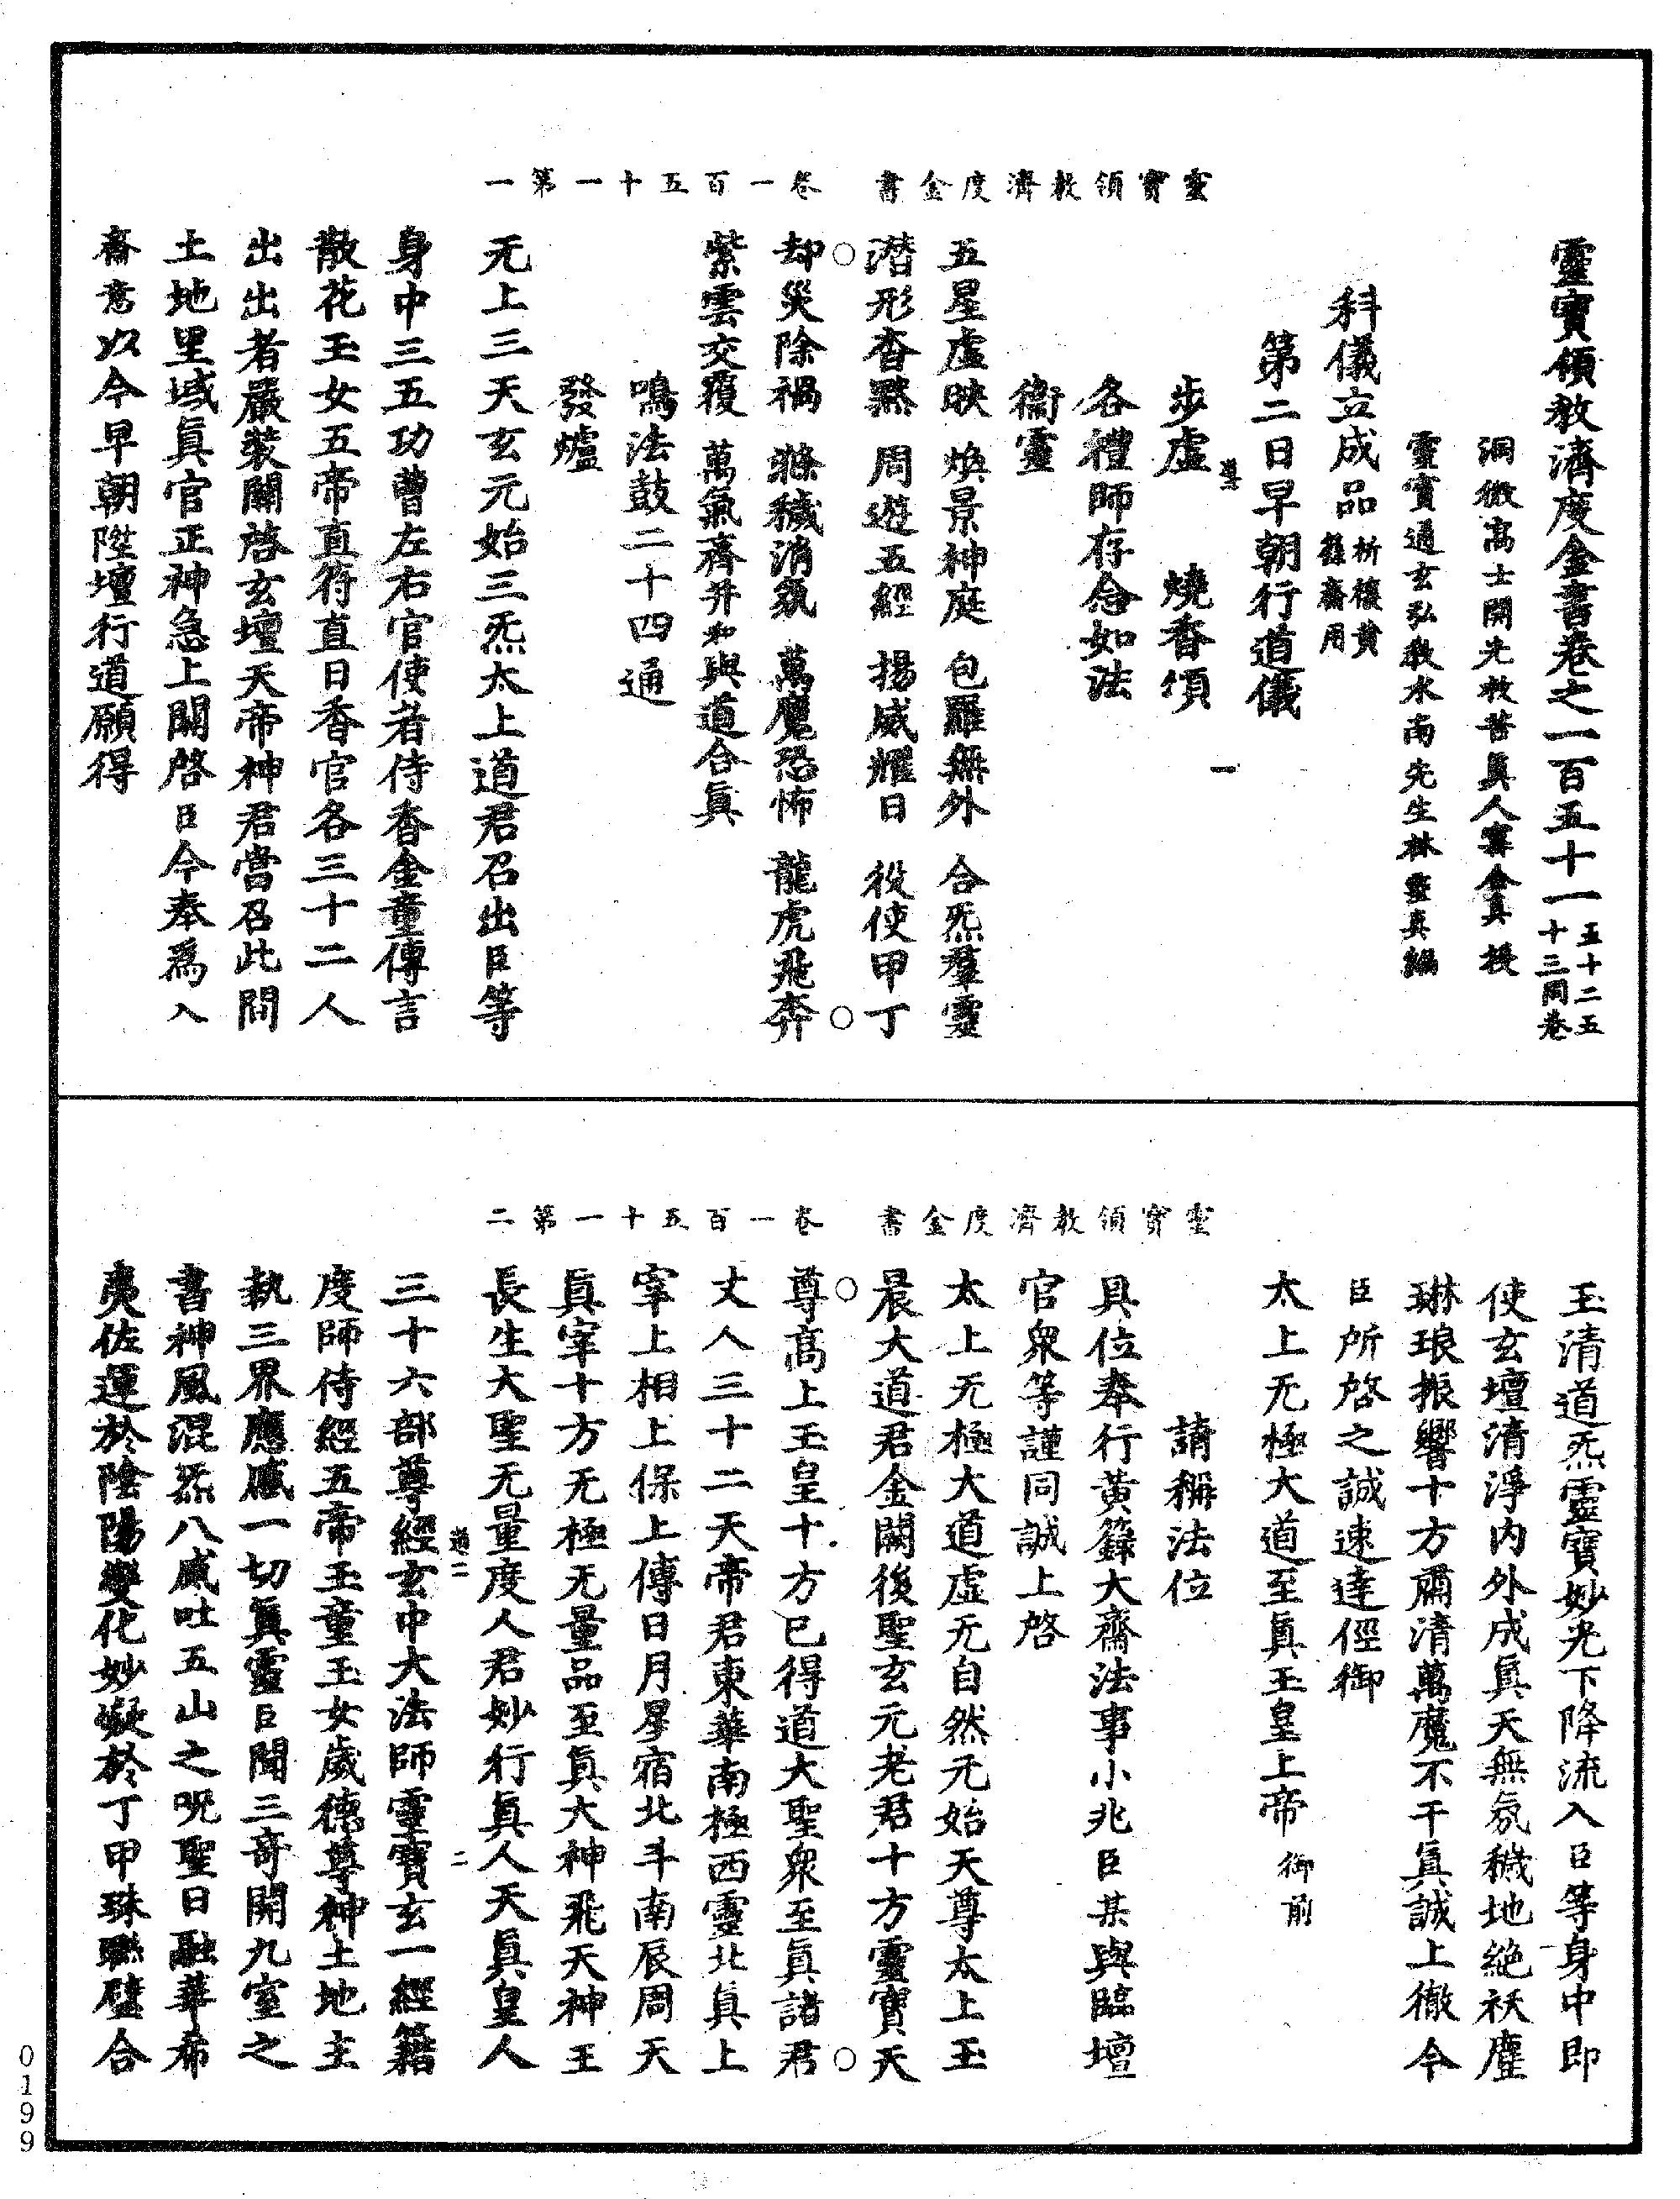 靈寶領教濟度金書卷之一百五十一 五十二五十三同卷
洞微高士開光救苦眞人寗全真授
靈寶通玄弘教水南先生林靈真編
科儀立成品 祈禳黃籙齋用
第二日早朝行道儀
步虛 燒香頌
各禮師存念如法
衞靈
五星虛映 煥景神庭 包羅無外 合炁羣靈
潛形杳黙 周遊五經 揚威耀日 役使甲丁
却災除禍 滌穢消氛 萬魔恐怖 龍虎飛奔
紫雲交覆 萬氣齊并 和與道合眞
鳴法鼓二十四通
發爐
无上三天玄元始三炁太上道君召出臣等
身中三五功曹左右官使者侍香金童傳言
散花玉女五帝直符直日香官各三十二人
出出者嚴裝關啓玄壇天帝神君當召此間
土地里域眞官正神急上關啓臣今奉爲入
齋意以今早朝陞壇行道願得
靈寶領教濟度金書 卷一百五十一第一
玉清道炁靈寶妙光下降流入臣等身中即
使玄壇清淨内外成眞天無氛穢地絕祅塵
琳琅振響十方肅清萬魔不干眞誠上徹令
臣所啓之誠速達徑御
太上无極大道至眞玉皇上帝 御前
請稱法位
具位奉行黃籙大齋法事小兆臣某與臨壇
官衆等謹同誠上啓
太上无極大道虛无自然元始天尊太上玉
晨大道君金闕後聖玄元老君十方靈寶天
尊高上玉皇十方已得道大聖衆至眞諸君
丈人三十二天帝君東華南極西靈北眞上
宰上相上保上傅日月星宿北斗南辰周天
眞宰十方无極无量品至眞大神飛天神王
長生大聖无量度人君妙行眞人天眞皇人
三十六部尊經玄中大法師靈寶玄一經籍
度師侍經五帝玉童玉女歲德尊神土地主
執三界應感一切眞靈臣聞三奇開九室之
書神風混炁八威吐五山之呪聖日融華希
夷佐運於陰陽變化妙凝於丁甲珠聯璧合
靈寶領教濟度金書 卷一百五十一第二
0199